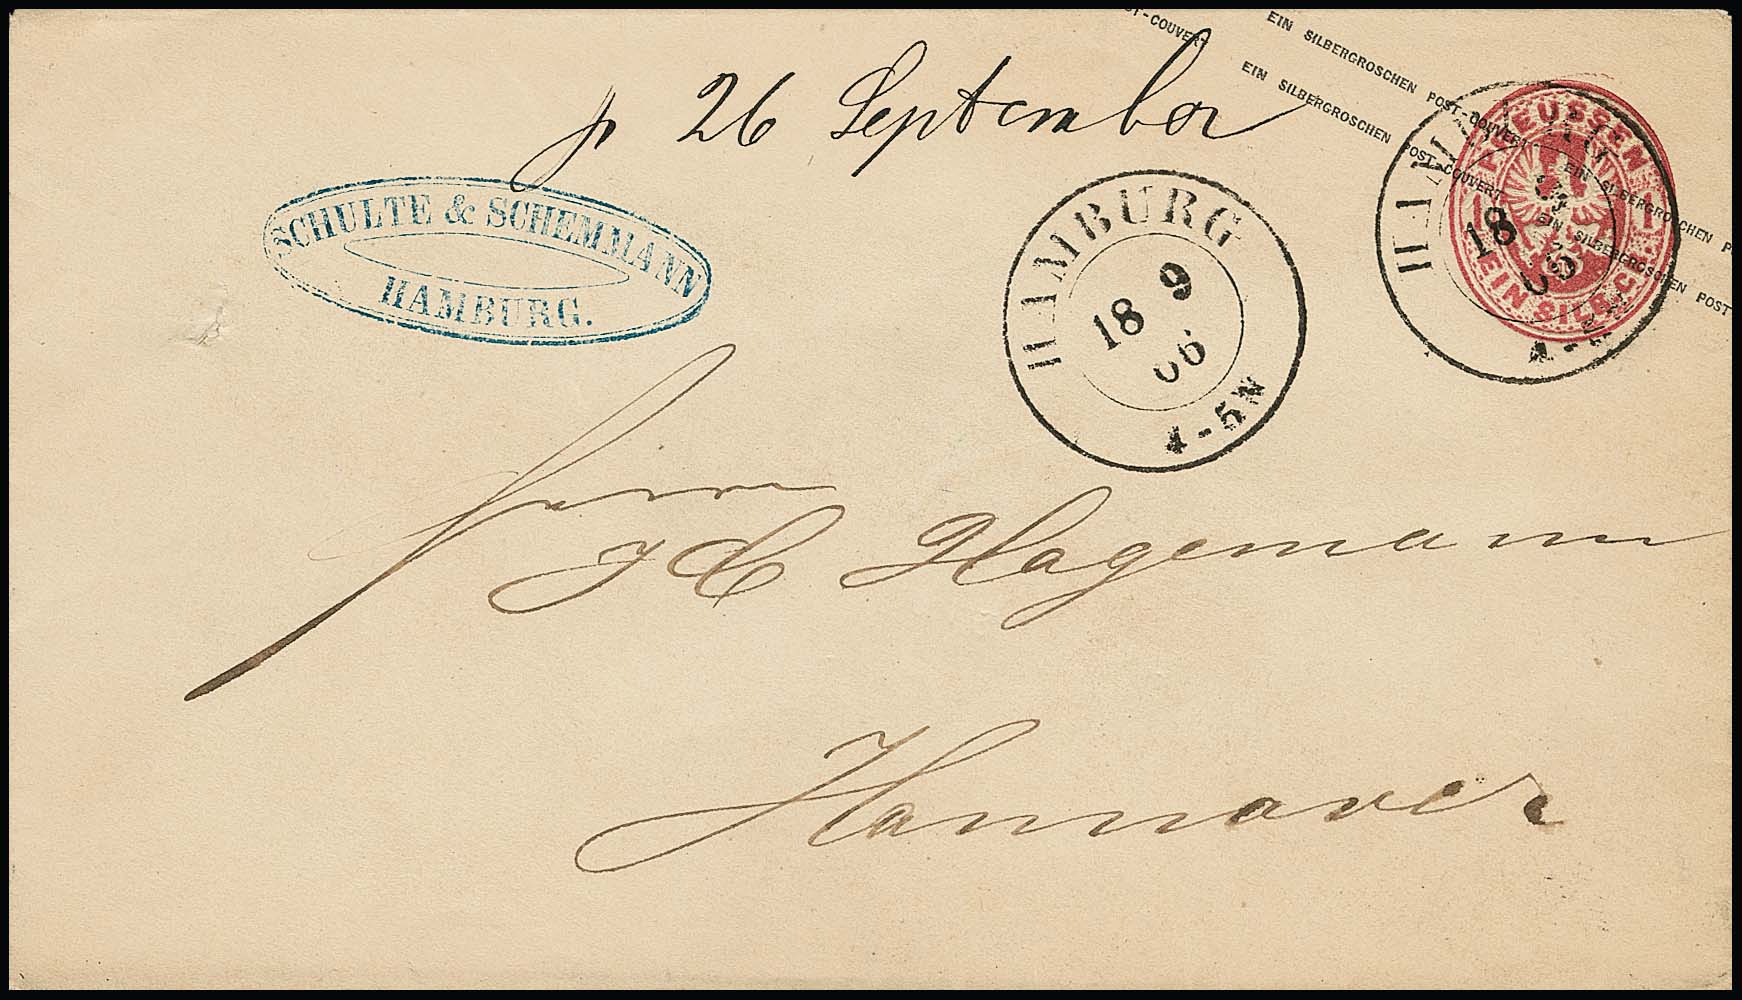 ST-COUVERT
EIN SILBERGROSCHEN POST-COUVERT EIN SILBERGROSCHEN P
EIN SILBERGROSCHEN POST-COUVERT EIN SILBERGROSCHEN POST
26 September
SCHULTE & SCHEMMANN
HAMBURG.
HAMBURG
18 9
66
4-5N
PREUSSEN
1 1
EIN SILB.GR.
18
4-5N
Herrn
J C Hagemann
Hannover